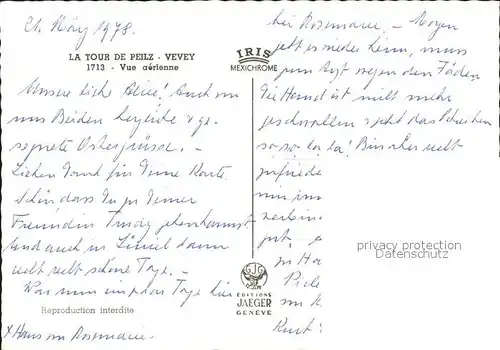 21. März 1978.
LA TOUR DE PEILZ - VEVEY
1713 - Vue aérienne
Unsere liebe Alice! Auch von
uns Beiden herzliche & ge-
segnete Ostergrüsse. -
Lieben Dank für Deine Karte
Schön dass Du zu Deiner
Freundin Trudy gekommen
und auch in Zürich dann
welt welt schöne Tage. -
War nun ein paar Tage hier
Reproduction interdite
x Hans u. Rosmarie
IRIS
MEXICHROME
bei Rosmarie. - Morgen
geht es wieder heim, muss
zum Arzt wegen den Fäden
Die Hand ist nicht mehr
geschwollen & geht das Schreiben
so so la la! Bin aber
zufriede
nun im
verbin
gut,
in Ha
EDITIONS
JAEGER
GENÈVE
privacy protection
Datenschutz